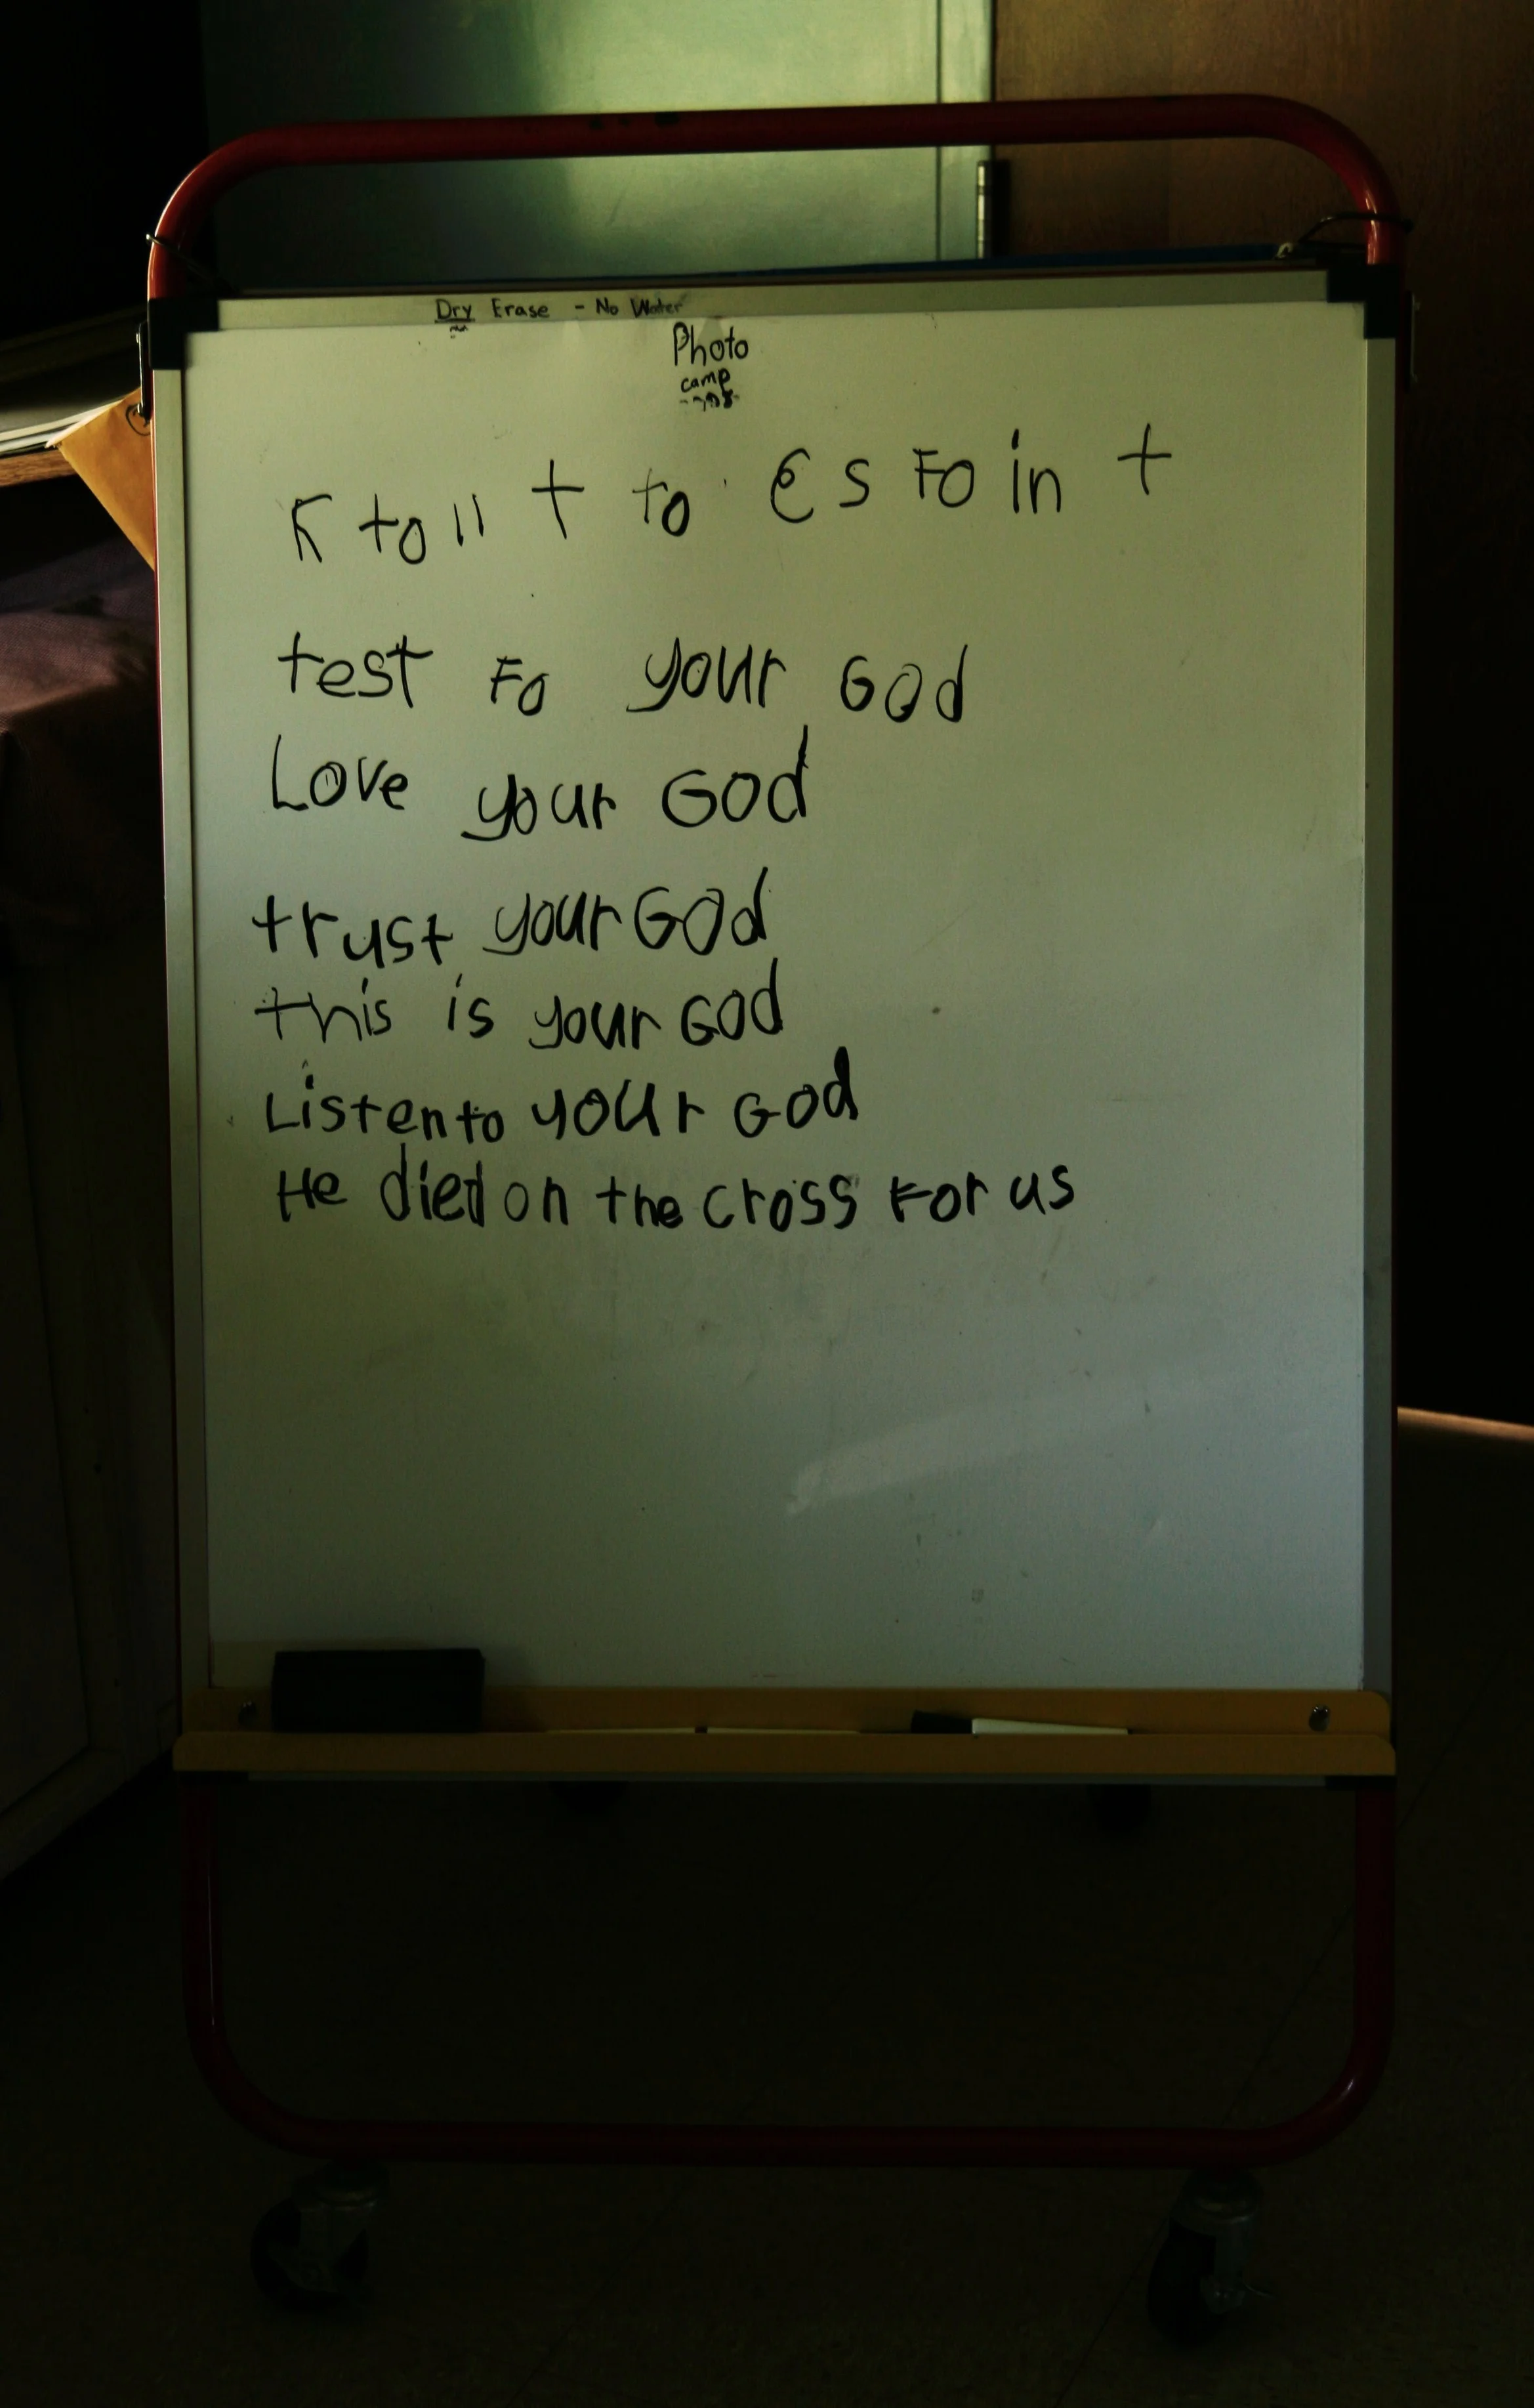 Dry Erase - No Water
Photo
camp
K to ll t to e s Fo in t
test Fo your God
Love your God
trust your God
this is your God
Listen to your God
He died on the cross For us